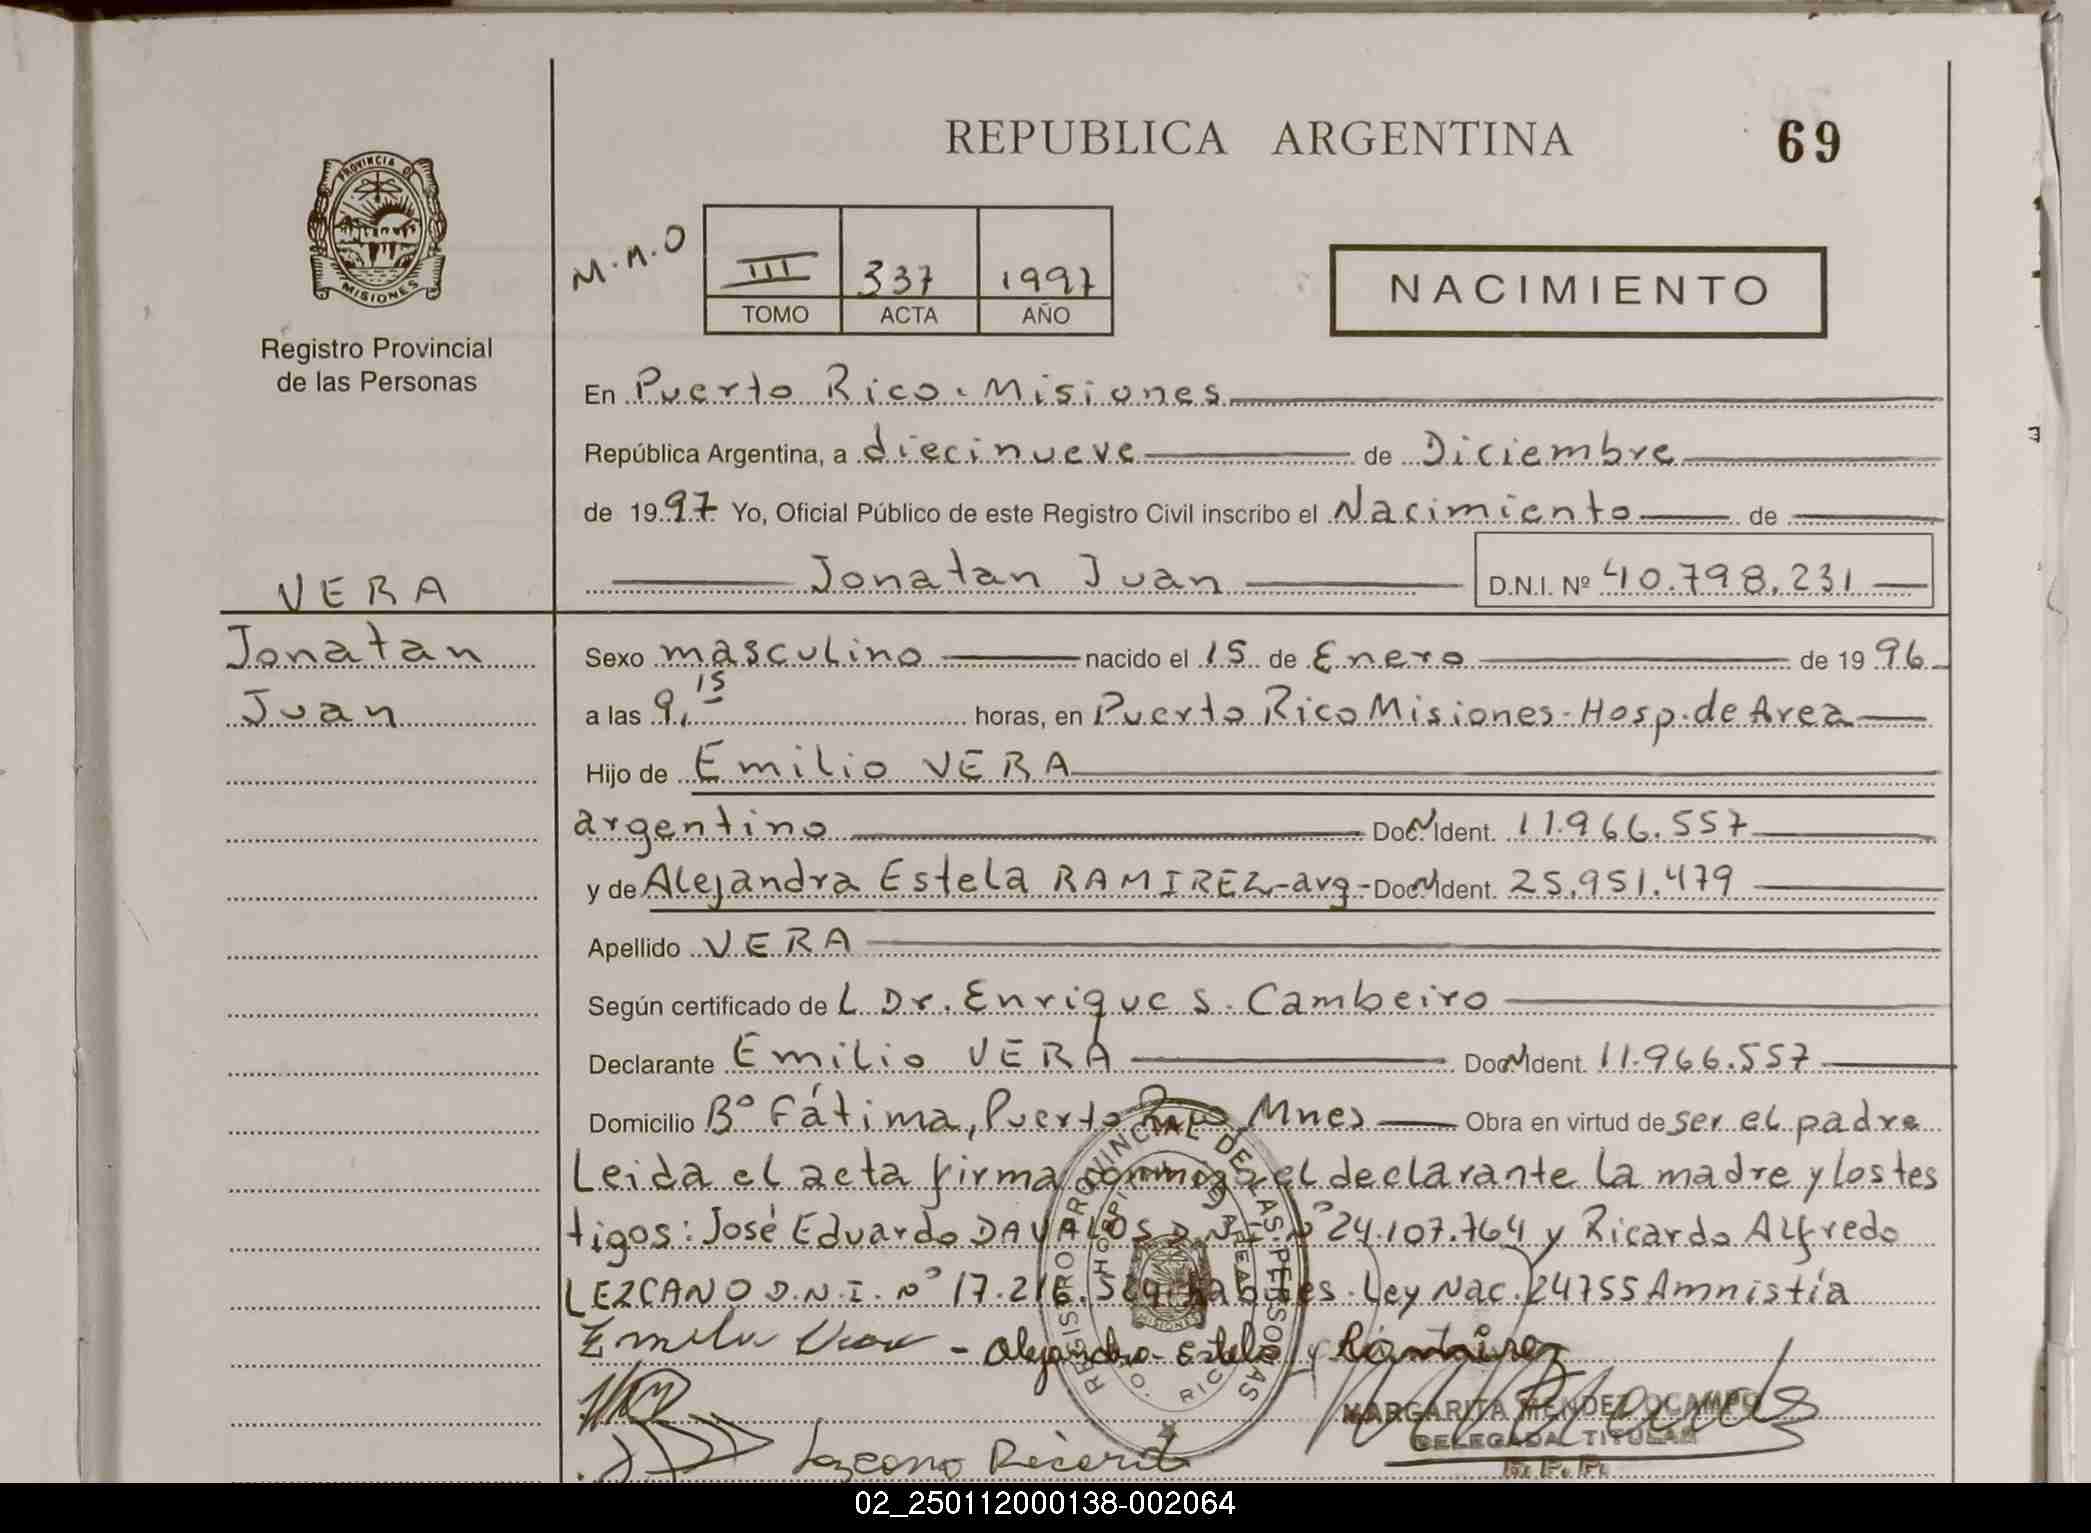 REPUBLICA ARGENTINA
69
PROVINCIA DE
MISIONES
Registro Provincial
de las Personas
M.M.O
III 337 1997
TOMO ACTA AÑO
NACIMIENTO
En Puerto Rico. Misiones
República Argentina, a diecinueve de Diciembre
de 1997 Yo, Oficial Público de este Registro Civil inscribo el Nacimiento de
Jonatan Juan D.N.I. Nº 40.798.231
VERA
Jonatan
Juan
Sexo masculino nacido el 15 de Enero de 1996
a las 9,15 horas, en Puerto Rico Misiones-Hosp.de Area
Hijo de Emilio VERA
argentino Doc. Ident. 11.966.557
y de Alejandra Estela RAMIREZ-arg-Doc. Ident. 25.951.479
Apellido VERA
Según certificado de L Dr. Enrique S. Cambeiro
Declarante Emilio VERA Doc. Ident. 11.966.557
Domicilio Bº Fátima, Puerto Rico, Mnes Obra en virtud de ser el padre
Leida el acta firma conmigo el declarante la madre y los tes
tigos: José Eduardo DAVALOS D.N.I. Nº 24.107.764 y Ricardo Alfredo
LEZCANO D.N.I. Nº habiles. Ley Nac. 24755 Amnistía
Emilio Vera - Alejandra Estela Ramirez
REGISTRO PROVINCIAL DE LAS PERSONAS
MARGARITA MENDEZ OCAMPO
DELEGADA TITULAR
R.P.P.
Lezcano Ricardo
02_250112000138-002064